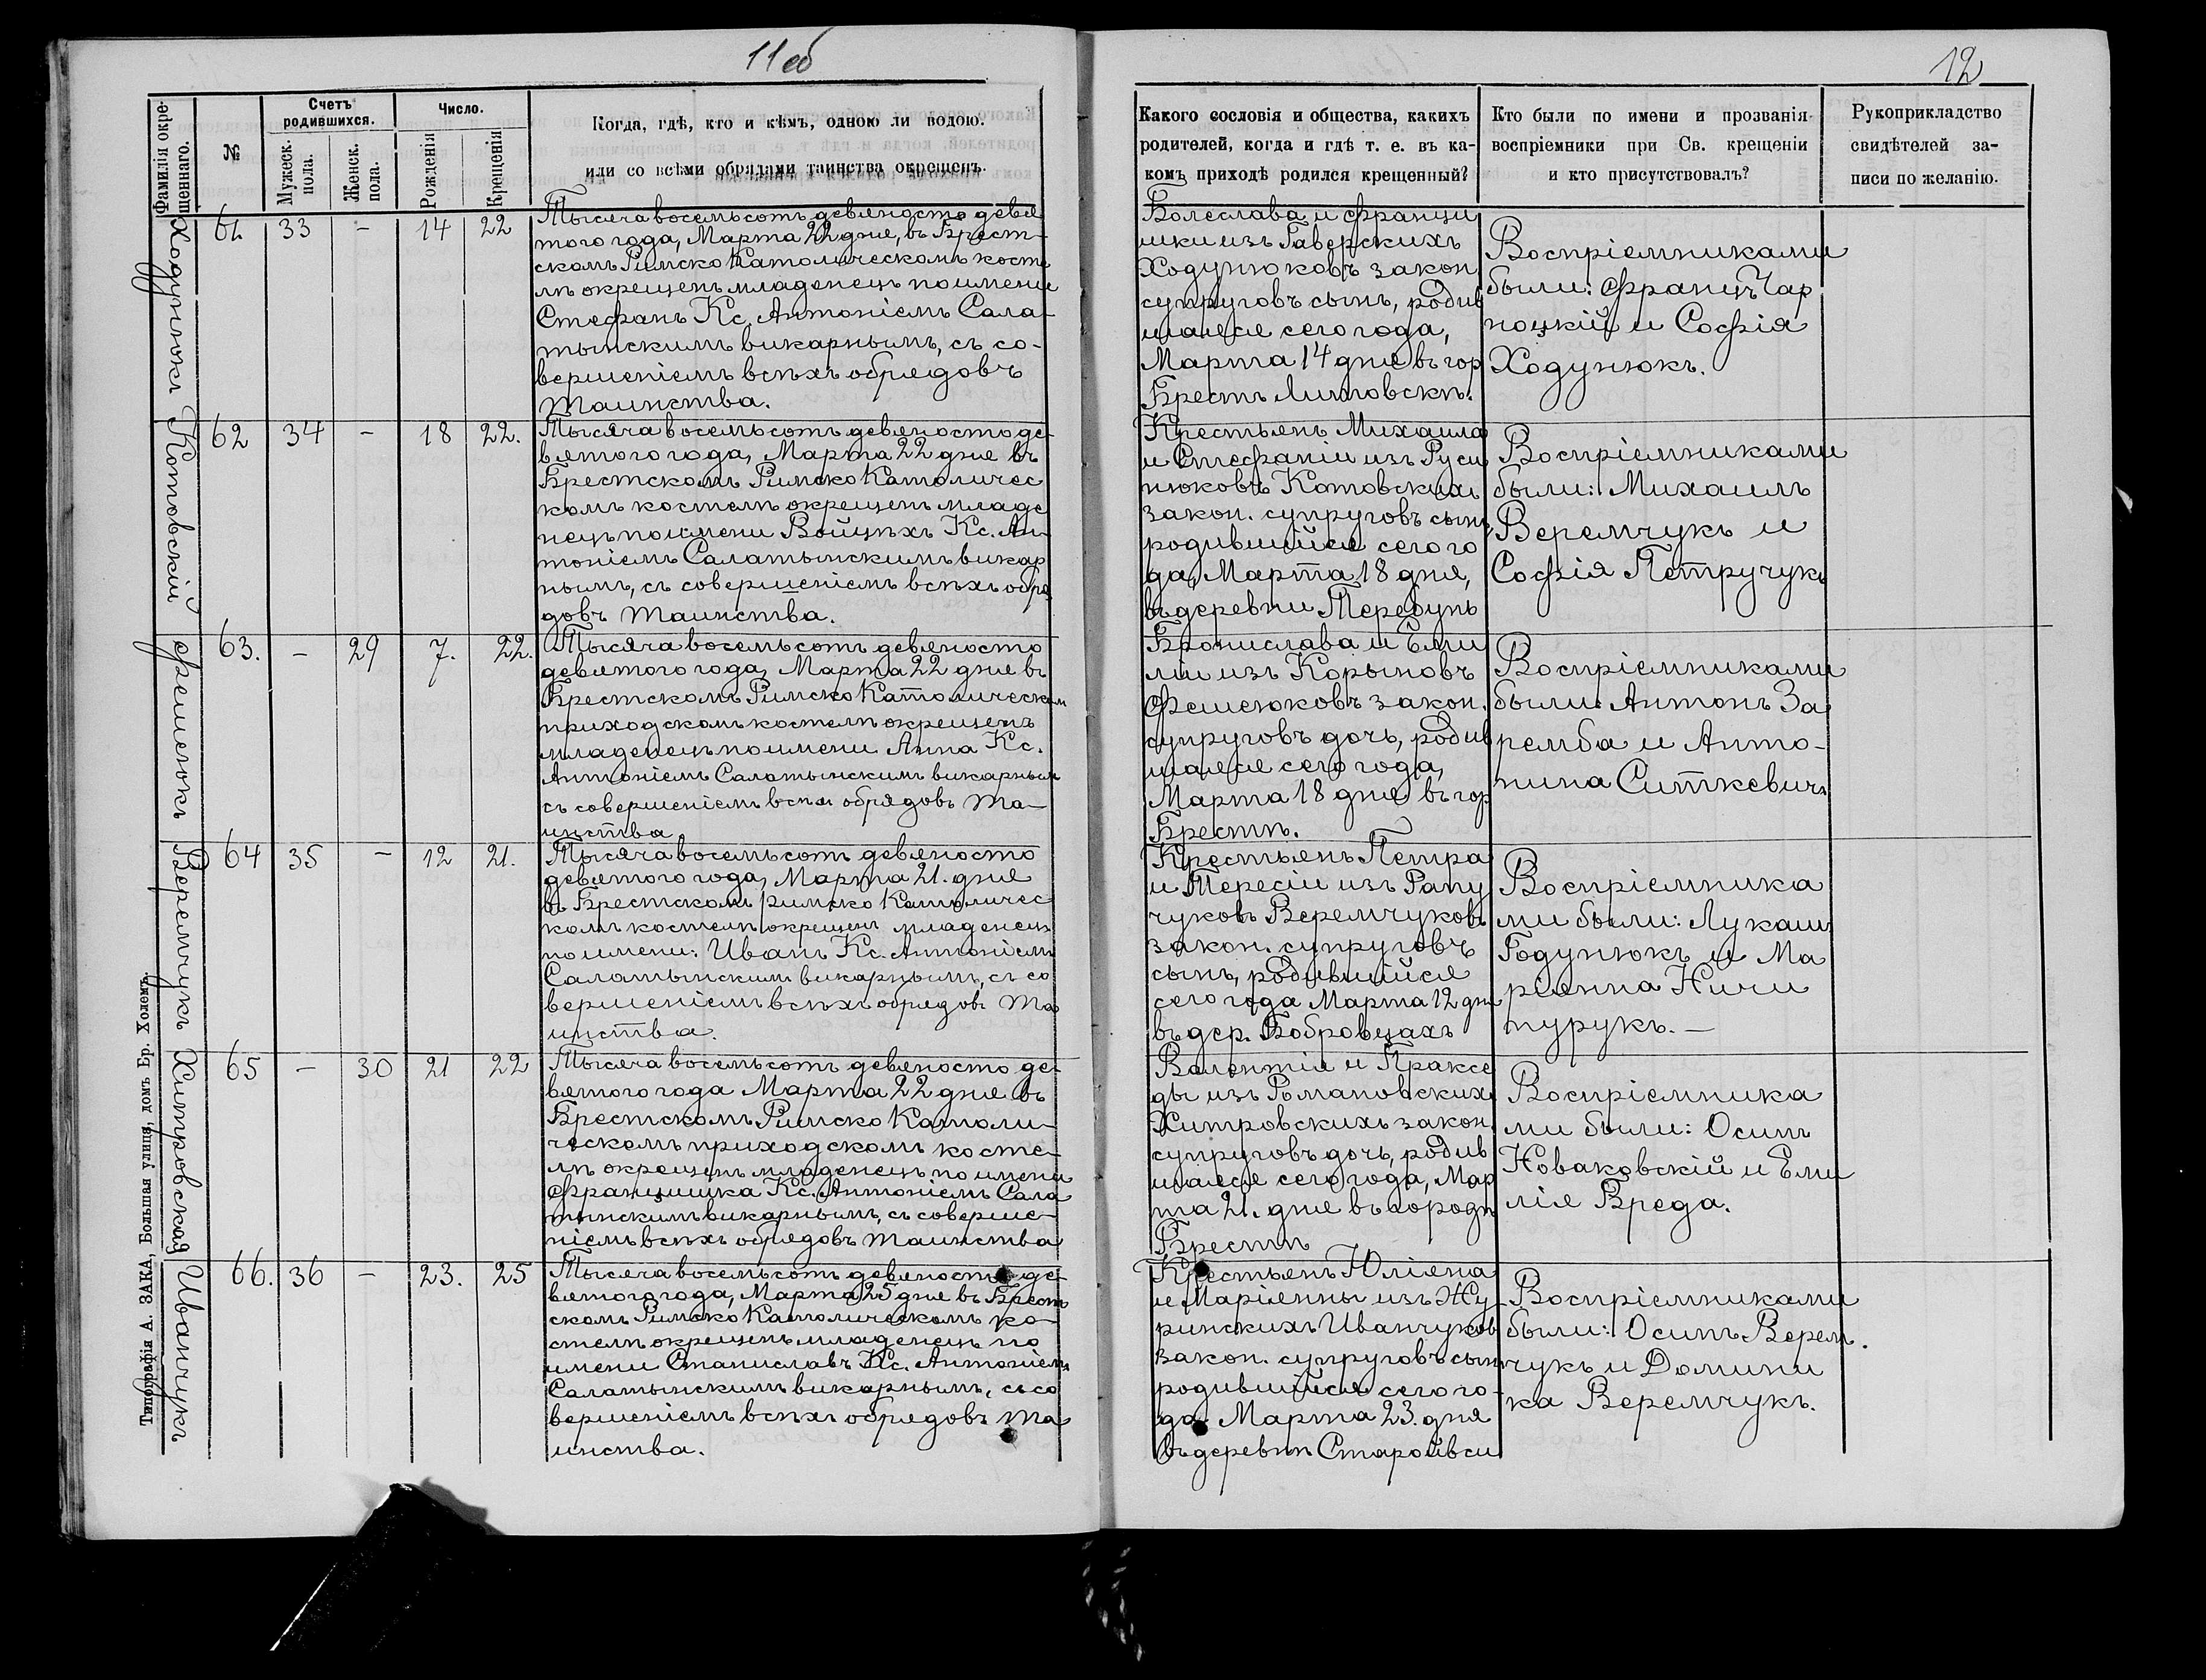 11 об
Фамилія окре-
щеннаго.
№
Счетъ
родившихся.
Мужеск.
пола.
Женск.
пола.
Число.
Рожденія
Крещенія
Когда, гдѣ, кто и кѣмъ, одною ли водою.
или со всѣми обрядами таинства окрещенъ.
Ходунюкъ
61. 33 - 14 22
Тысяча восемьсотъ девяносто девя
того года, Марта 22 дня, въ Брест-
скомъ Римско Католическомъ косте
лѣ окрещенъ младенецъ по имени
Стефанъ Кс. Антоніемъ Сала-
тынскимъ викарнымъ, съ со-
вершеніемъ всѣхъ обрядовъ
таинства.
Котовскій
62 34 - 18 22.
Тысяча восемьсотъ девяносто де-
вятого года, Марта 22 дня въ
Брестскомъ Римско Католичес
комъ костелѣ окрещенъ младе
нецъ по имени Войцѣхъ Кс. Ан-
тоніемъ Салатынскимъ викар
нымъ, съ совершеніемъ всѣхъ обря
довъ таинства.
Фешеюкъ
63. - 29 7. 22.
Тысяча восемьсотъ девяносто
девятого года, Марта 22 дня въ
Брестскомъ Римско Католическом
приходскомъ костелѣ окрещенъ
младенецъ по имени Анна Кс.
Антоніемъ Салатынскимъ викарным
съ совершеніемъ всѣхъ обрядовъ та-
инства.
Веремчукъ
64 35 - 12 21.
Тысяча восемьсотъ девяносто
девятого года, Марта 21. дня
въ Брестскомъ римско Католичес
комъ костелѣ окрещенъ младенецъ
по имени: Иванъ Кс. Антоніемъ
Салатынскимъ викарнымъ, съ со
вершеніемъ всѣхъ обрядовъ та
инства.
Хитровская
65 - 30 21 22
Тысяча восемьсотъ девяносто де-
вятого года Марта 22 дня въ
Брестскомъ Римско Католи-
ческомъ приходскомъ косте-
лѣ окрещенъ младенецъ по имени
Францишка Кс. Антоніемъ Сала
тынскимъ викарнымъ, съ соверше-
ніемъ всѣхъ обрядовъ таинства
Иванчукъ
66. 36 - 23. 25
Тысяча восемьсотъ девяносто де-
вятого года, Марта 25 дня въ Брест
скомъ Римско Католическомъ ко-
стелѣ окрещенъ младенецъ по
имени Станиславъ Кс. Антоніемъ
Салатынскимъ викарнымъ, съ со
вершеніемъ всѣхъ обрядовъ та
инства.
Типографія А. ЗАКА, Большая улица, домъ Бр. Холемъ.
12
Какого сословія и общества, какихъ
родителей, когда и гдѣ т. е. въ ка-
комъ приходѣ родился крещенный?
Кто были по имени и прозванія
воспріемники при Св. крещеніи
и кто присутствовалъ?
Рукоприкладство
свидѣтелей за-
писи по желанію.
Болеслава и Франци
шки изъ Гаверскихъ
Ходунюковъ закон
супруговъ сынъ, родив
шаяся сего года,
Марта 14 дня въ гор
Брестъ Литовскѣ.
Воспріемниками
были: Францъ Чар
поцкій и Софія
Ходунюкъ.
Крестьянъ Михаила
и Стефаніи изъ Руси
нюковъ Котовскихъ
закон. супруговъ сынъ,
родившійся сего го
да, Марта 18 дня,
въ деревни Теребунь
Воспріемниками
были: Михаилъ
Веремчукъ и
Софія Петручукъ
Бронислава и Еми
ліи изъ Корыновъ
Фешеюковъ закон.
супруговъ дочь, родив
шаяся сего года,
Марта 18 дня въ гор
Брестѣ.
Воспріемниками
были: Антонъ За
ремба и Анто-
нина Ситкевичъ
Крестьянъ Петра
и Тересіи изъ Рапу
чуковъ Веремчуковъ
закон. супруговъ
сынъ, родившійся
сего года Марта 12 дня
въ дер. Бобровцахъ
Воспріемника
ми были: Лукашъ
Годунюкъ и Ма
ріанна Ничи
пурукъ. —
Валентія и Праксе
ды изъ Романовскихъ
Хитровскихъ закон.
супруговъ дочь, родив
шаяся сего года, Мар
та 21. дня въ городѣ
Брестѣ
Воспріемника
ми были: Осипъ
Новаковскій и Еми
лія Вреда.
Крестьянъ Юліяна
и Маріянны изъ Жу-
ринскихъ Иванчуков
закон. супруговъ сынъ
родившійся сего го-
да Марта 23. дня
въ деревнѣ Старойвси
Воспріемниками
были: Осипъ Верем.
чукъ и Домини
ка Веремчукъ.